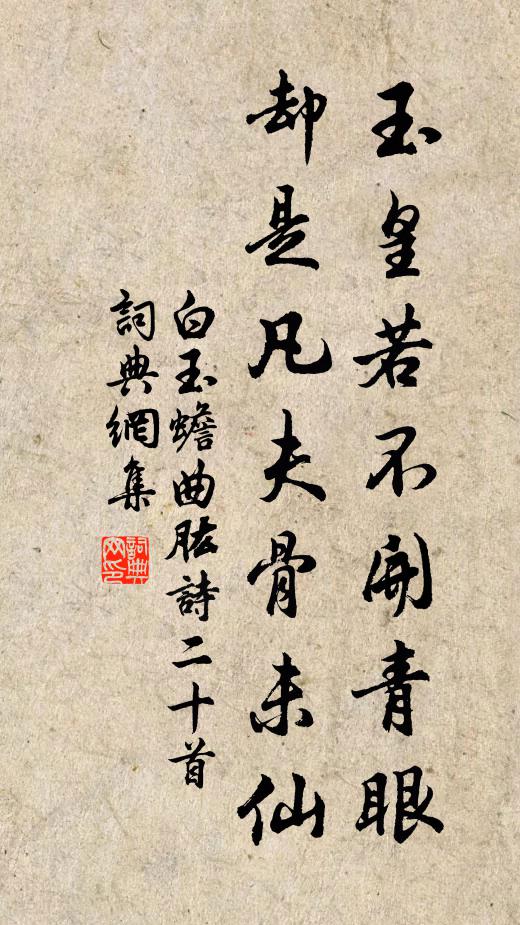 玉皇若不開青眼
却是凡夫骨未仙
白玉蟾曲肱詩二十首
詞典網集
詞典网印